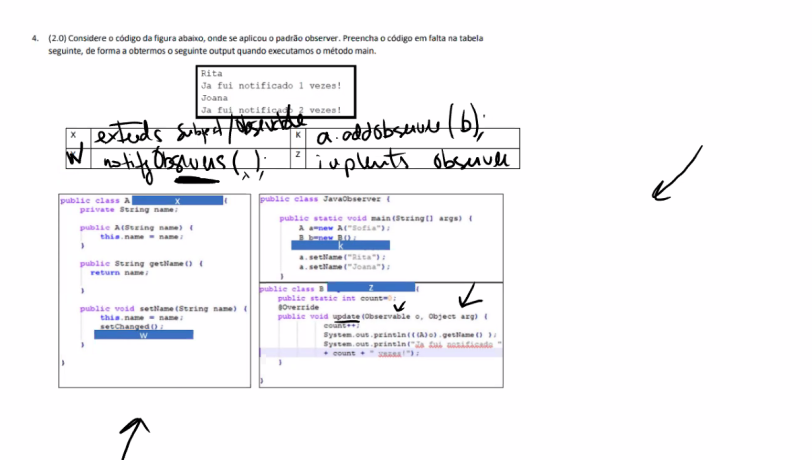 4. (2.0) Considere o código da figura abaixo, onde se aplicou o padrão observer. Preencha o código em falta na tabela
seguinte, de forma a obtermos o seguinte output quando executamos o método main.
Rita
Ja fui notificado 1 vezes!
Joana
Ja fui notificado 2 vezes!
X extends Subject/Observable K a.addobserver(b);
W notifyObservers( ); Z implents observer
public class A X {
private String name;
public A(String name) {
this.name = name;
}
public String getName() {
return name;
}
public void setName(String name) {
this.name = name;
setChanged();
W
}
}
public class JavaObserver {
public static void main(String[] args) {
A a=new A("Sofia");
B b=new B();
k
a.setName("Rita");
a.setName("Joana");
}
public class B Z {
public static int count=0;
@Override
public void update(Observable o, Object arg) {
count++;
System.out.println(((A)o).getName() );
System.out.println("Ja fui notificado "
+ count + " vezes!");
}
}